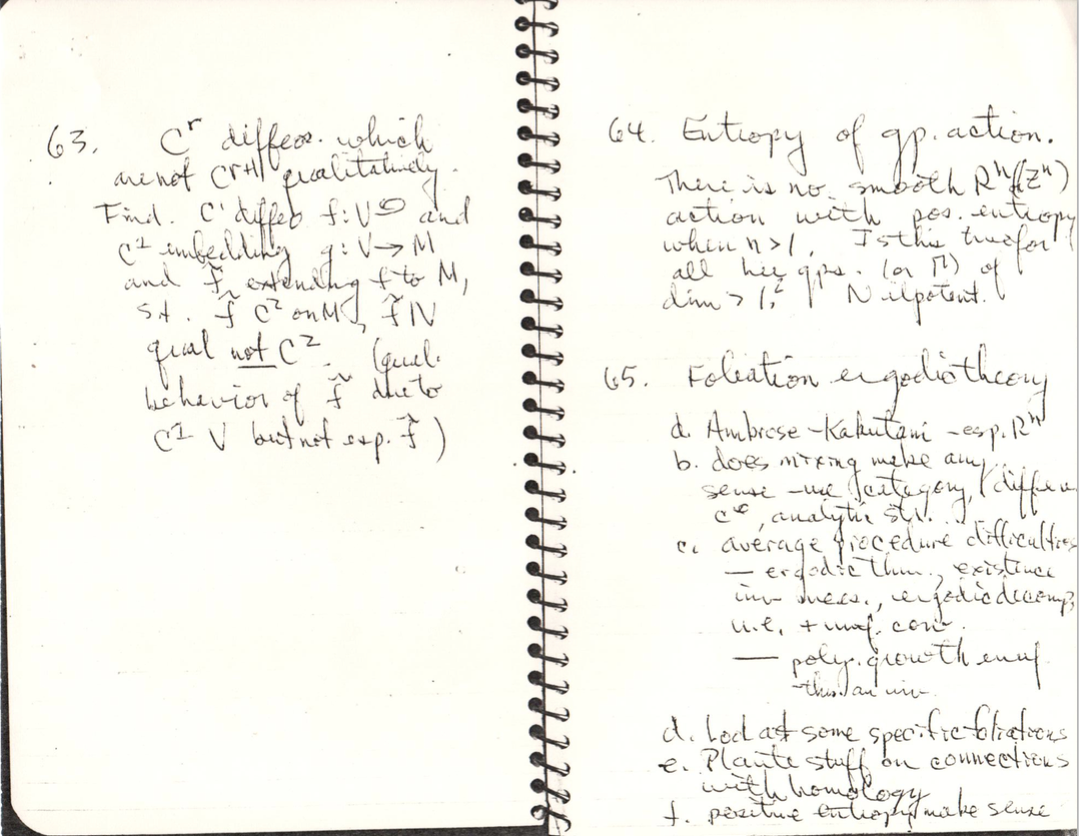 63. Cʳ diffeos. which
are not Cʳ⁺¹ qualitatively.
Find. C¹ diffeo f:V↺ and
C¹ embedding g: V → M
and f̃ extending f to M,
s.t. f̃ C² on M, f̃|V
qual not C². (qual.
behavior of f̃ due to
C¹ V but not esp. f̃)
64. Entropy of gp. action.
There is no smooth Rⁿ (Zⁿ)
action with pos. entropy
when n > 1. Is this true for
all Lie gps. (or Γ) of
dim > 1? Nilpotent.
65. Foliation ergodic theory
a. Ambrose-Kakutani - esp. Rⁿ
b. does mixing make any
sense - category,
analytic
c. average procedure difficulties
— ergodic thm., existence
inv meas., ergodic decomp,
u.e. + unif. conv.
— poly. growth
inv.
d. Look at some specific foliations
e. Plante stuff on connections
with homology
f. positive entropy make sense